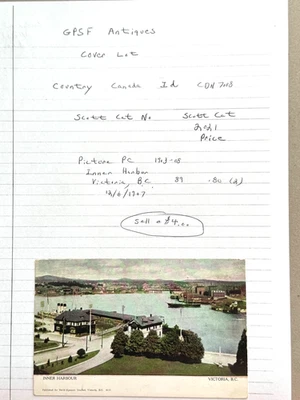 GPSF Antiques
Cover Lot
Country Canada Id CDN 7003
Scott Cat No. Scott Cat
Price
Picture PC 1903-08
Inner Harbor
Victoria, BC 89 .80 (d)
14/6/1907
Sell @ $4.00
INNER HARBOUR VICTORIA, B.C.